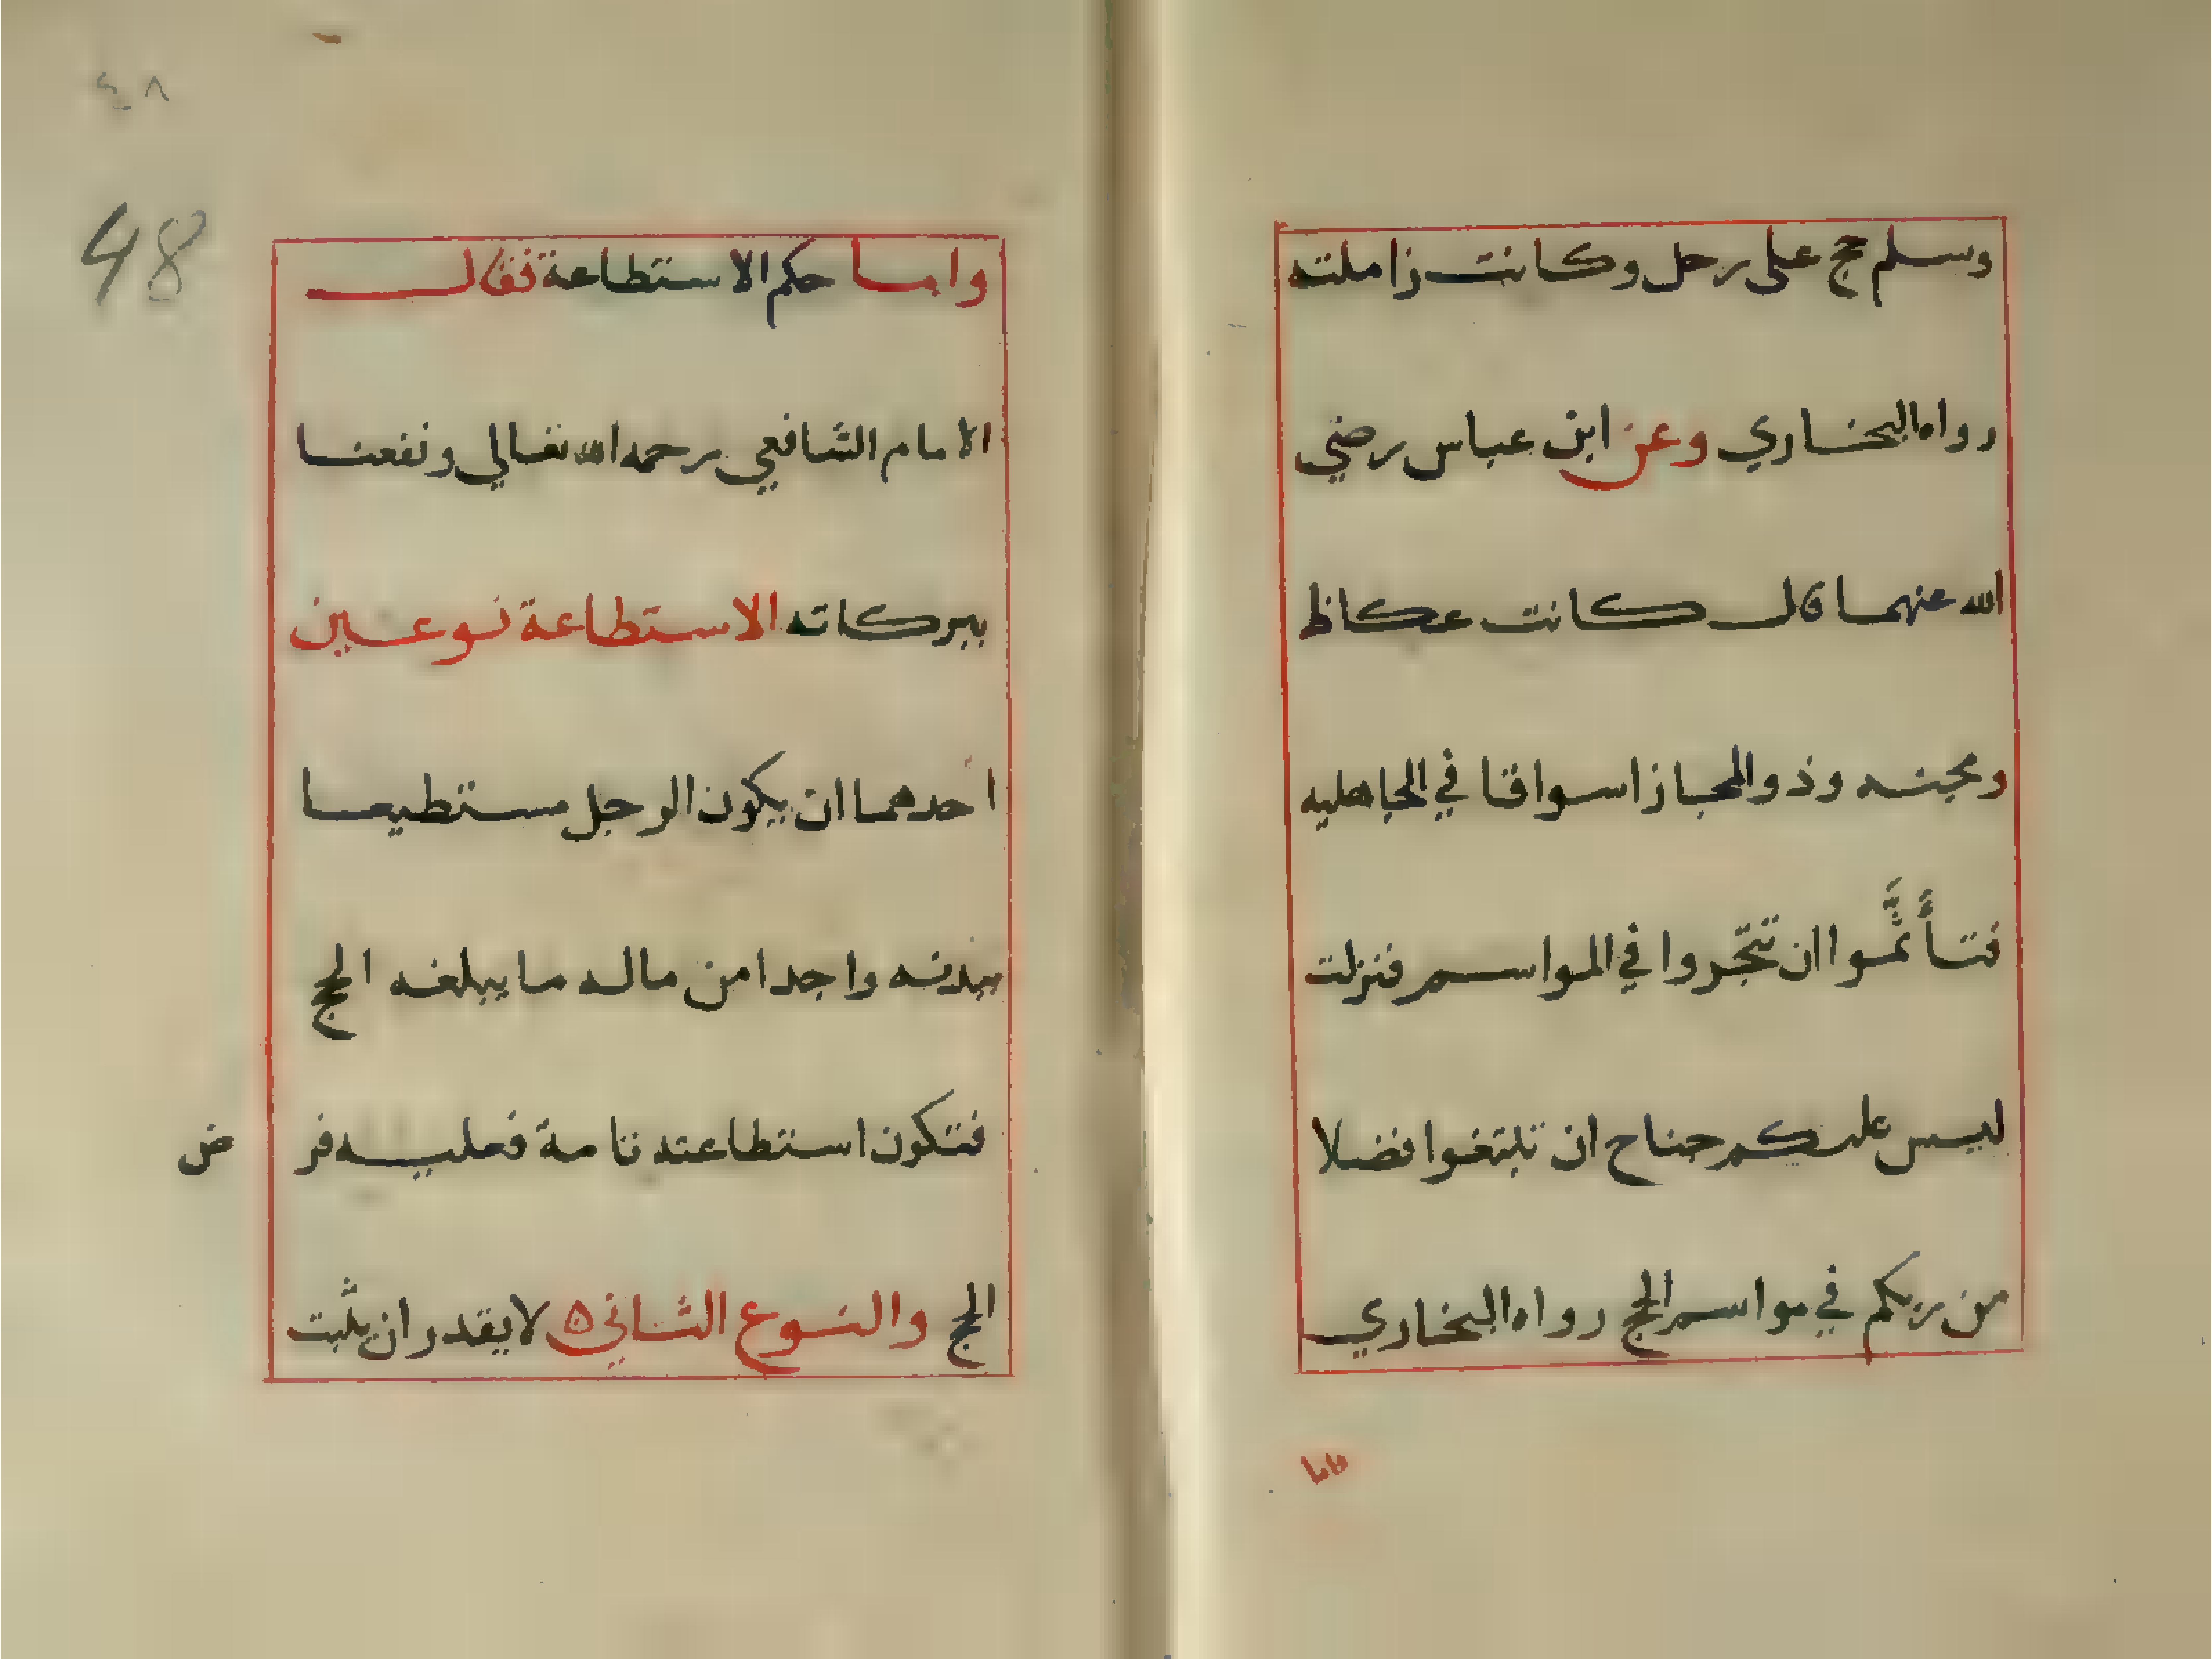 وسلم حج على رحل وكانت زاملته
رواه البخاري وعن ابن عباس رضي
الله عنهما قال كانت عكاظ
ومجنه وذو المجاز اسواقا في الجاهليه
فتأثَّموا ان تتّجروا في المواسم فنزلت
ليس عليكم جناح ان تبتغوا فضلا
من ربكم في مواسم الحج رواه البخاري
واما
٤٨
48
واما حكم الاستطاعة فقال
الامام الشافعي رحمه الله تعالي ونفعنا
ببركاته الاستطاعة نوعين
أحدهما ان يكون الرجل مستطيعا
ببدنه واجدا من ماله ما يبلغه الحج
فتكون استطاعته تامة فعليه فرض
الحج والنوع الثاني ه لا يقدر ان يثبت